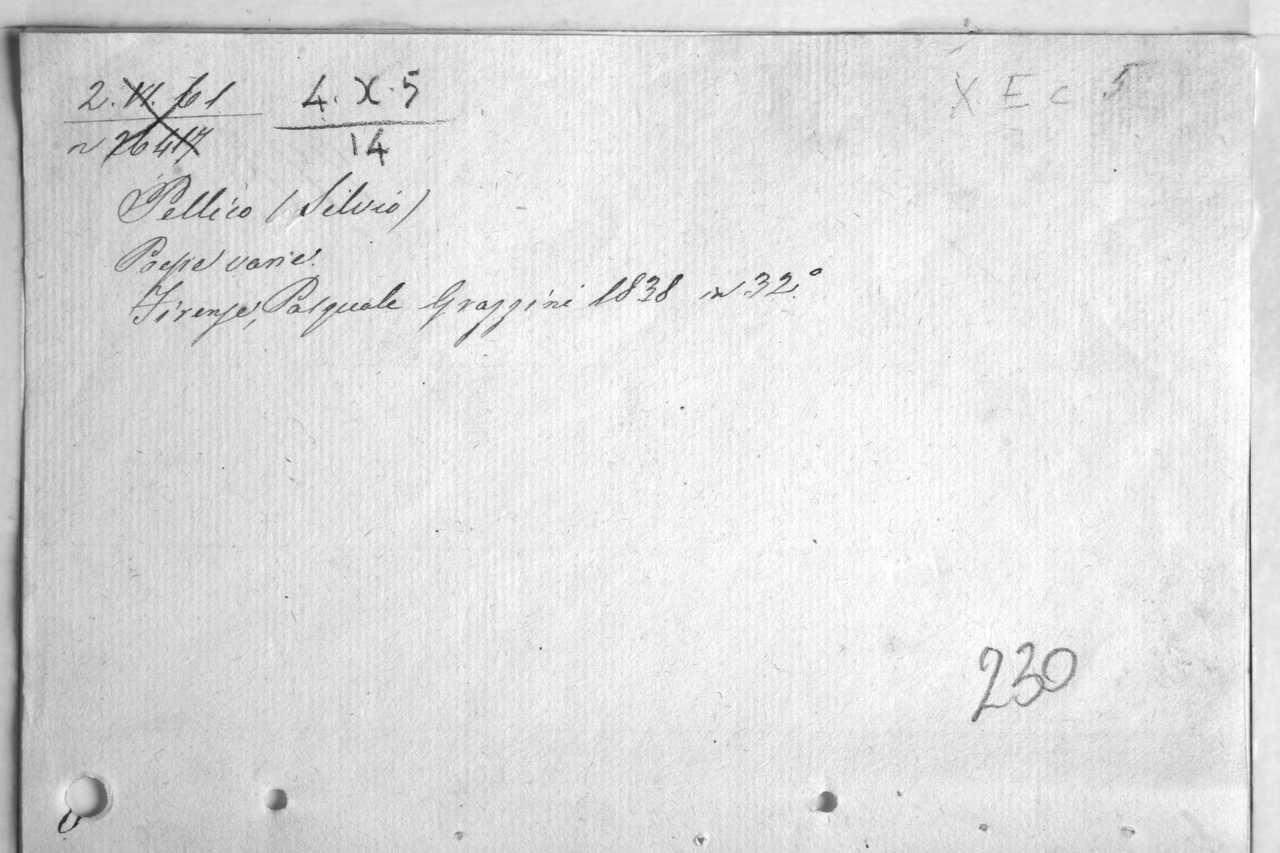 2. VI. 61 4. X. 5 X E c 5
n 26417 14
Pellico (Silvio)
Poesie varie.
Firenze, Pasquale Grazzini 1838 in 32.°
230